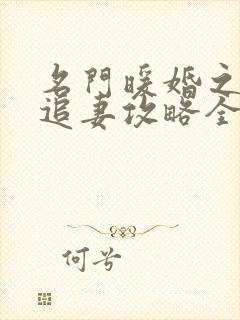 名門暖婚之
追妻攻略全
何兮